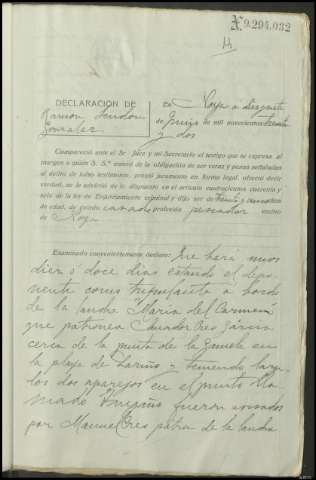 X 9.294.032
DECLARACION DE
Ramón Sendón
González
En Noya a
de Junio de mil novecientos treinta
y dos
Compareció ante el Sr. Juez y mi Secretario el testigo que se expresa al
margen a quien S. S.ª enteró de la obligación de ser veraz y penas señaladas
al delito de falso testimonio, prestó juramento en forma legal, ofreció decir
verdad, se le advirtió de lo dispuesto en el artículo cuatrocientos cuarenta y
seis de la ley de Enjuiciamiento criminal y dijo ser de treinta y
de edad, de estado casado profesión pescador vecino
de Noya
Examinado convenientemente declara: Que hará unos
diez o doce días estando el depo-
nente como tripulante a bordo
de la lancha "María del Carmen"
que patronea Amador Tres García
cerca de la punta de la
la playa de Lariño y teniendo larga-
dos dos aparejos en el punto lla-
mado fueron avisados
por Manuel Tres patrón de la lancha